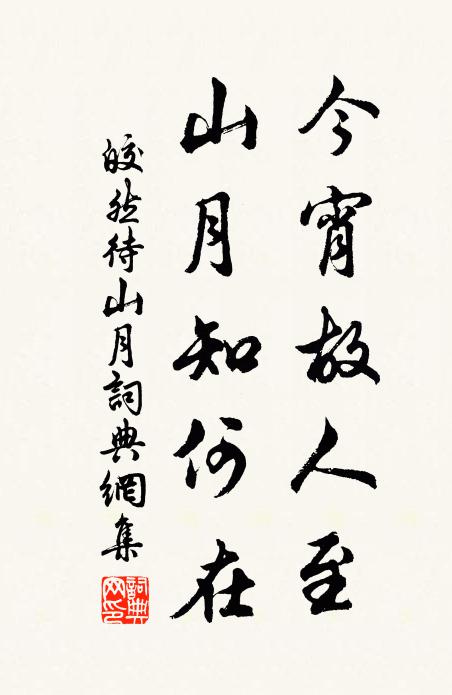 今宵故人至
山月知何在
皎然待山月詞典網集
詞典
网印